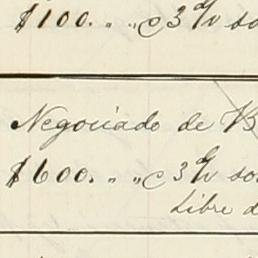 $100. " " c 3 d/v so
Negociado de B
$600. " " c 3 d/v so
Libre d